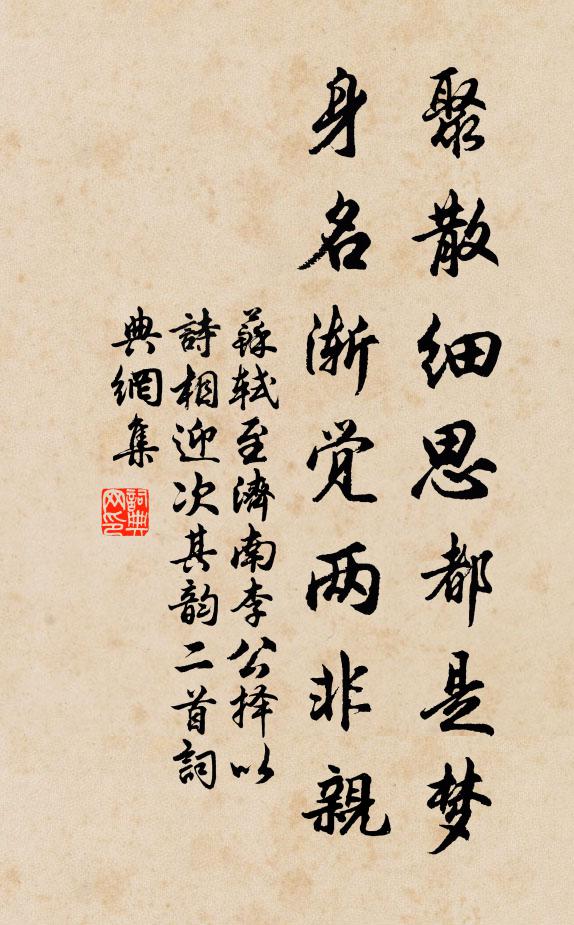 聚散细思都是梦
身名渐觉两非親
蘇轼至濟南李公择以
詩相迎次其韵二首詞
典網集
詞典网印